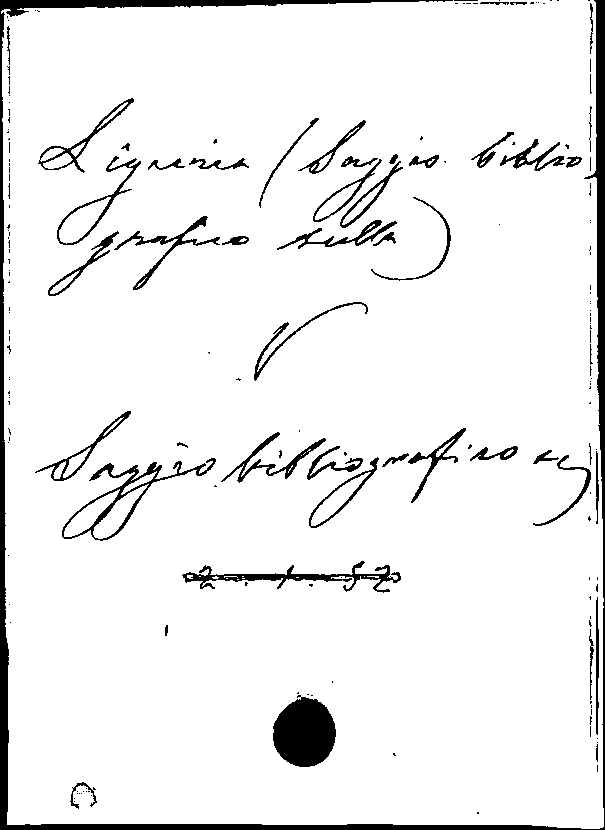 Liguria (Saggio biblio
grafico sulla)
V
Saggio bibliografico ec
2. 1. 52